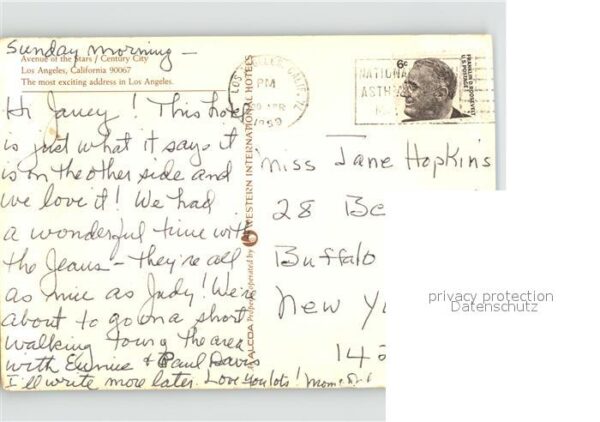 Sunday morning —
Avenue of the Stars / Century City
Los Angeles, California 90067
The most exciting address in Los Angeles.
Hi Janey! This hotel
is just what it says it
is on the other side and
we love it! We had
a wonderful time with
the Jeans - they're all
as nice as Judy! We're
about to go on a short
walking tour of the area
with Eunice & Paul Davis
I'll write more later. Love you lots! Mom &
WESTERN INTERNATIONAL HOTELS
ALCOA Property operated by
LOS ANGELES, CALIF.
PM
APR
1969
NATIONAL
ASTHMA
6c
FRANKLIN D. ROOSEVELT
U.S. POSTAGE
Miss Jane Hopkins
28
Buffalo
New Yo
142
privacy protection
Datenschutz